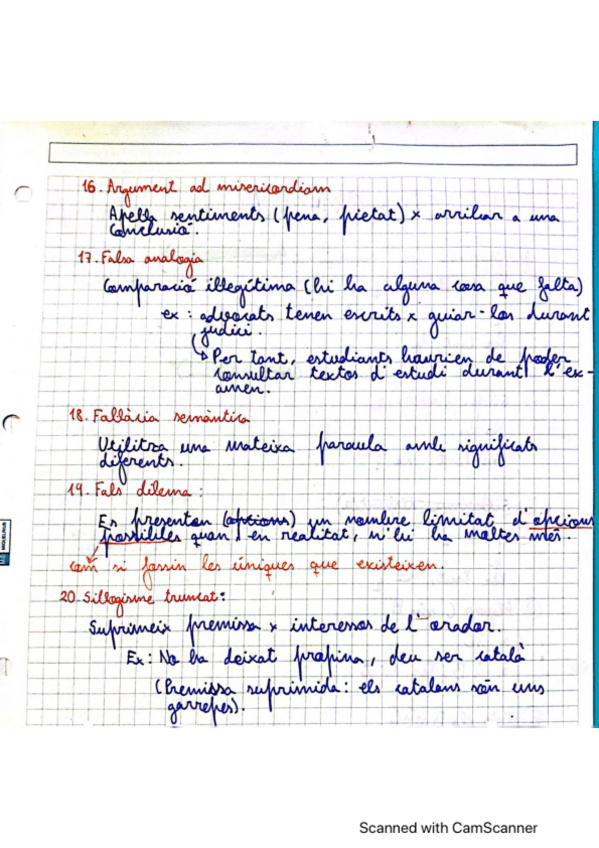 16. Argument ad misericordiam
Apel·la sentiments (pena, pietat) x arribar a una
conclusió.
17. Falsa analogia
Comparació illegítima (hi ha alguna cosa que falta)
ex: advocats tenen escrits x guiar-los durant
judici.
Per tant, estudiants haurien de poder
consultar textos d'estudi durant l'ex-
amen.
18. Fal·làcia semàntica
Utilitza una mateixa paraula amb significats
diferents.
19. Fals dilema:
Es presenten (opcions) un nombre limitat d'opcions
possibles quan, en realitat, n'hi ha moltes més.
com si fossin les úniques que existeixen.
20. Sil·logisme truncat:
Suprimeix premissa x interessos de l'orador.
Ex: No ha deixat propina, deu ser català
(Premissa suprimida: els catalans són uns
garrepes).
MIQUELRIUS
Scanned with CamScanner